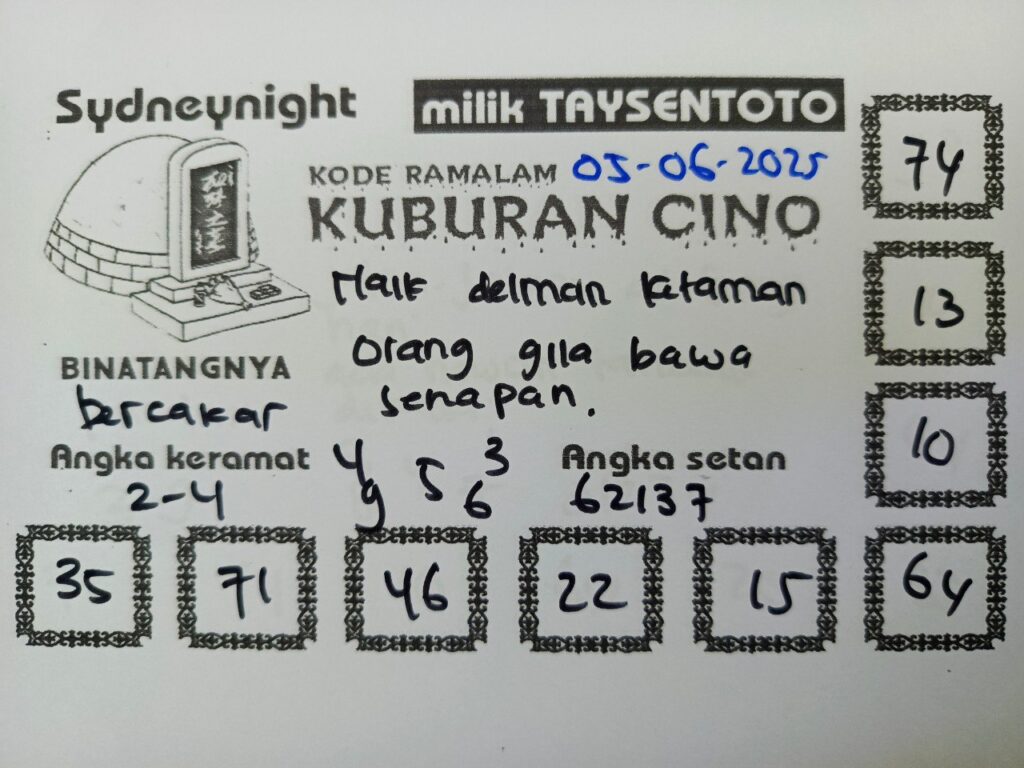 Sydneynight
milik TAYSENTOTO
KODE RAMALAM 05-06-2025
KUBURAN CINO
Naik delman ketaman
orang gila bawa
senapan.
BINATANGNYA
bercakar
Angka keramat
2-4
4 5 3
9 6
Angka setan
62137
74
13
10
35 71 46 22 15 64